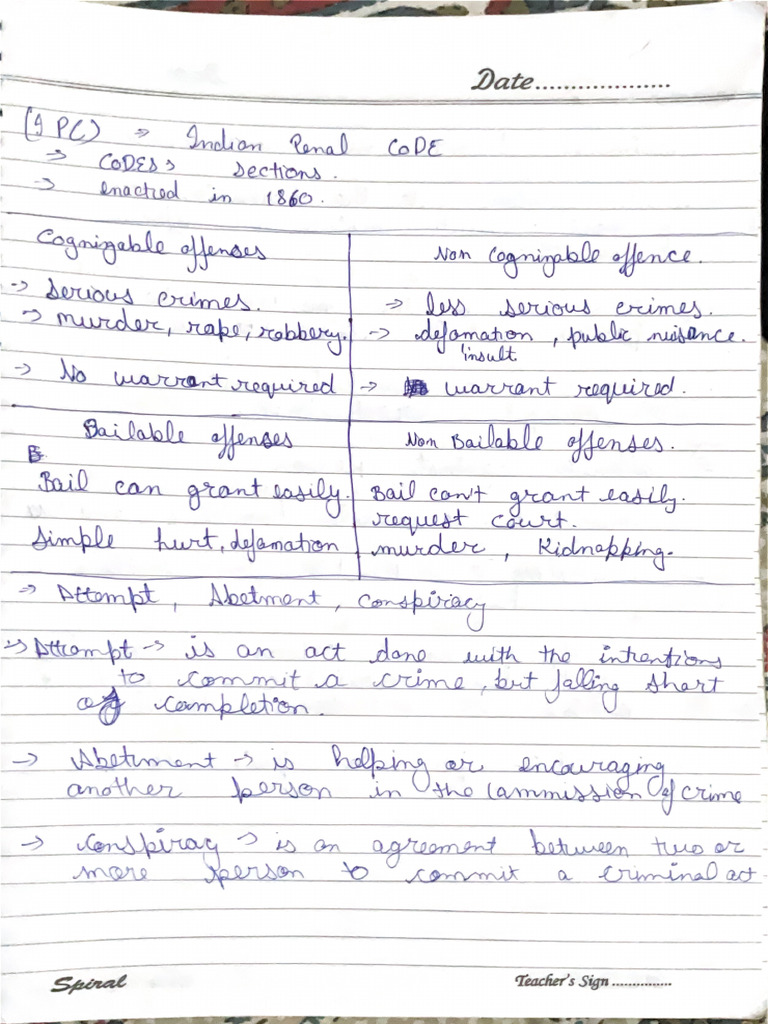 Date...................
(IPC) → Indian Penal CODE
→ CODES → sections.
→ enactred in 1860.
Cognizable offenses
Non Cognizable offence.
→ Serious crimes.
→ less serious crimes.
→ murder, rape, robbery.
→ defamation, public nuisance.
insult
→ No warrant required
→ warrant required.
Bailable offenses
Non Bailable offenses.
Bail can grant easily.
Bail can't grant easily.
request court.
Simple hurt, defamation
murder, Kidnapping.
→ Attempt, Abetment, conspiracy
→ Attempt → is an act done with the intentions
to commit a crime, but falling short
of completion.
→ Abetment → is helping or encouraging
another person in the commission of crime
→ Conspiracy → is an agreement between two or
more person to commit a criminal act
Spiral
Teacher's Sign ...............